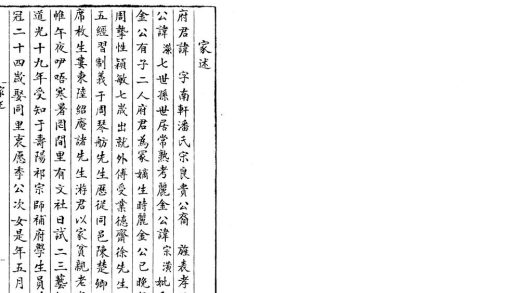 家述
府君諱　字南軒潘氏宗良貴公裔　旌表孝
公諱濴七世孫世居常熟考麗金公諱宗潢妣
金公有子二人府君為冢嫡生時麗金公已晚
周摯性穎敏七歲出就外傅受業德齋徐先生
五經習制義于周琴舫先生歷從同邑陳楚卿
席敉生婁東陸紹庵諸先生游君以家貧親老
帷午夜咿唔寒暑罔間里有文社日試二三藝
道光十九年受知于壽陽祁宗師補府學生員
冠二十四歲娶同里袁應李公次女是年五月